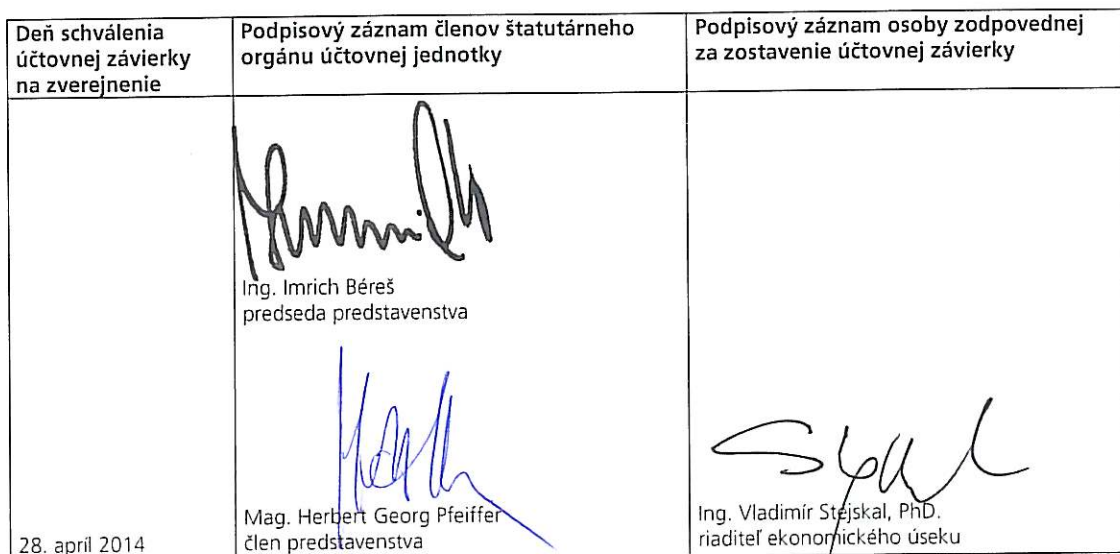 Deň schválenia
účtovnej závierky
na zverejnenie
Podpisový záznam členov štatutárneho
orgánu účtovnej jednotky
Podpisový záznam osoby zodpovednej
za zostavenie účtovnej závierky
Ing. Imrich Béreš
predseda predstavenstva
Mag. Herbert Georg Pfeiffer
člen predstavenstva
Ing. Vladimír Stejskal, PhD.
riaditeľ ekonomického úseku
28. apríl 2014